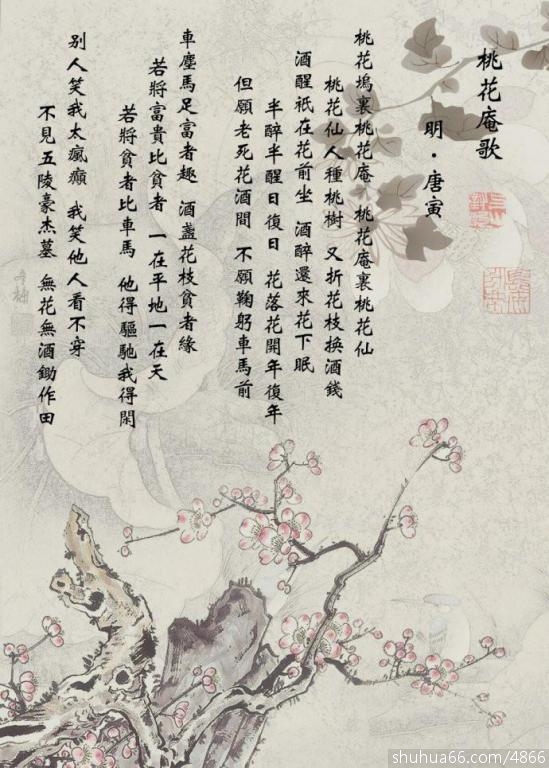 桃花庵歌
明·唐寅
桃花塢裏桃花庵 桃花庵裏桃花仙
桃花仙人種桃樹 又折花枝換酒錢
酒醒衹在花前坐 酒醉還來花下眠
半醉半醒日復日 花落花開年復年
但願老死花酒間 不願鞠躬車馬前
車塵馬足富者趣 酒盞花枝貧者緣
若將富貴比貧者 一在平地一在天
若將貧者比車馬 他得驅馳我得閑
别人笑我太瘋癲 我笑他人看不穿
不見五陵豪杰墓 無花無酒鋤作田
shuhua66.com/4866